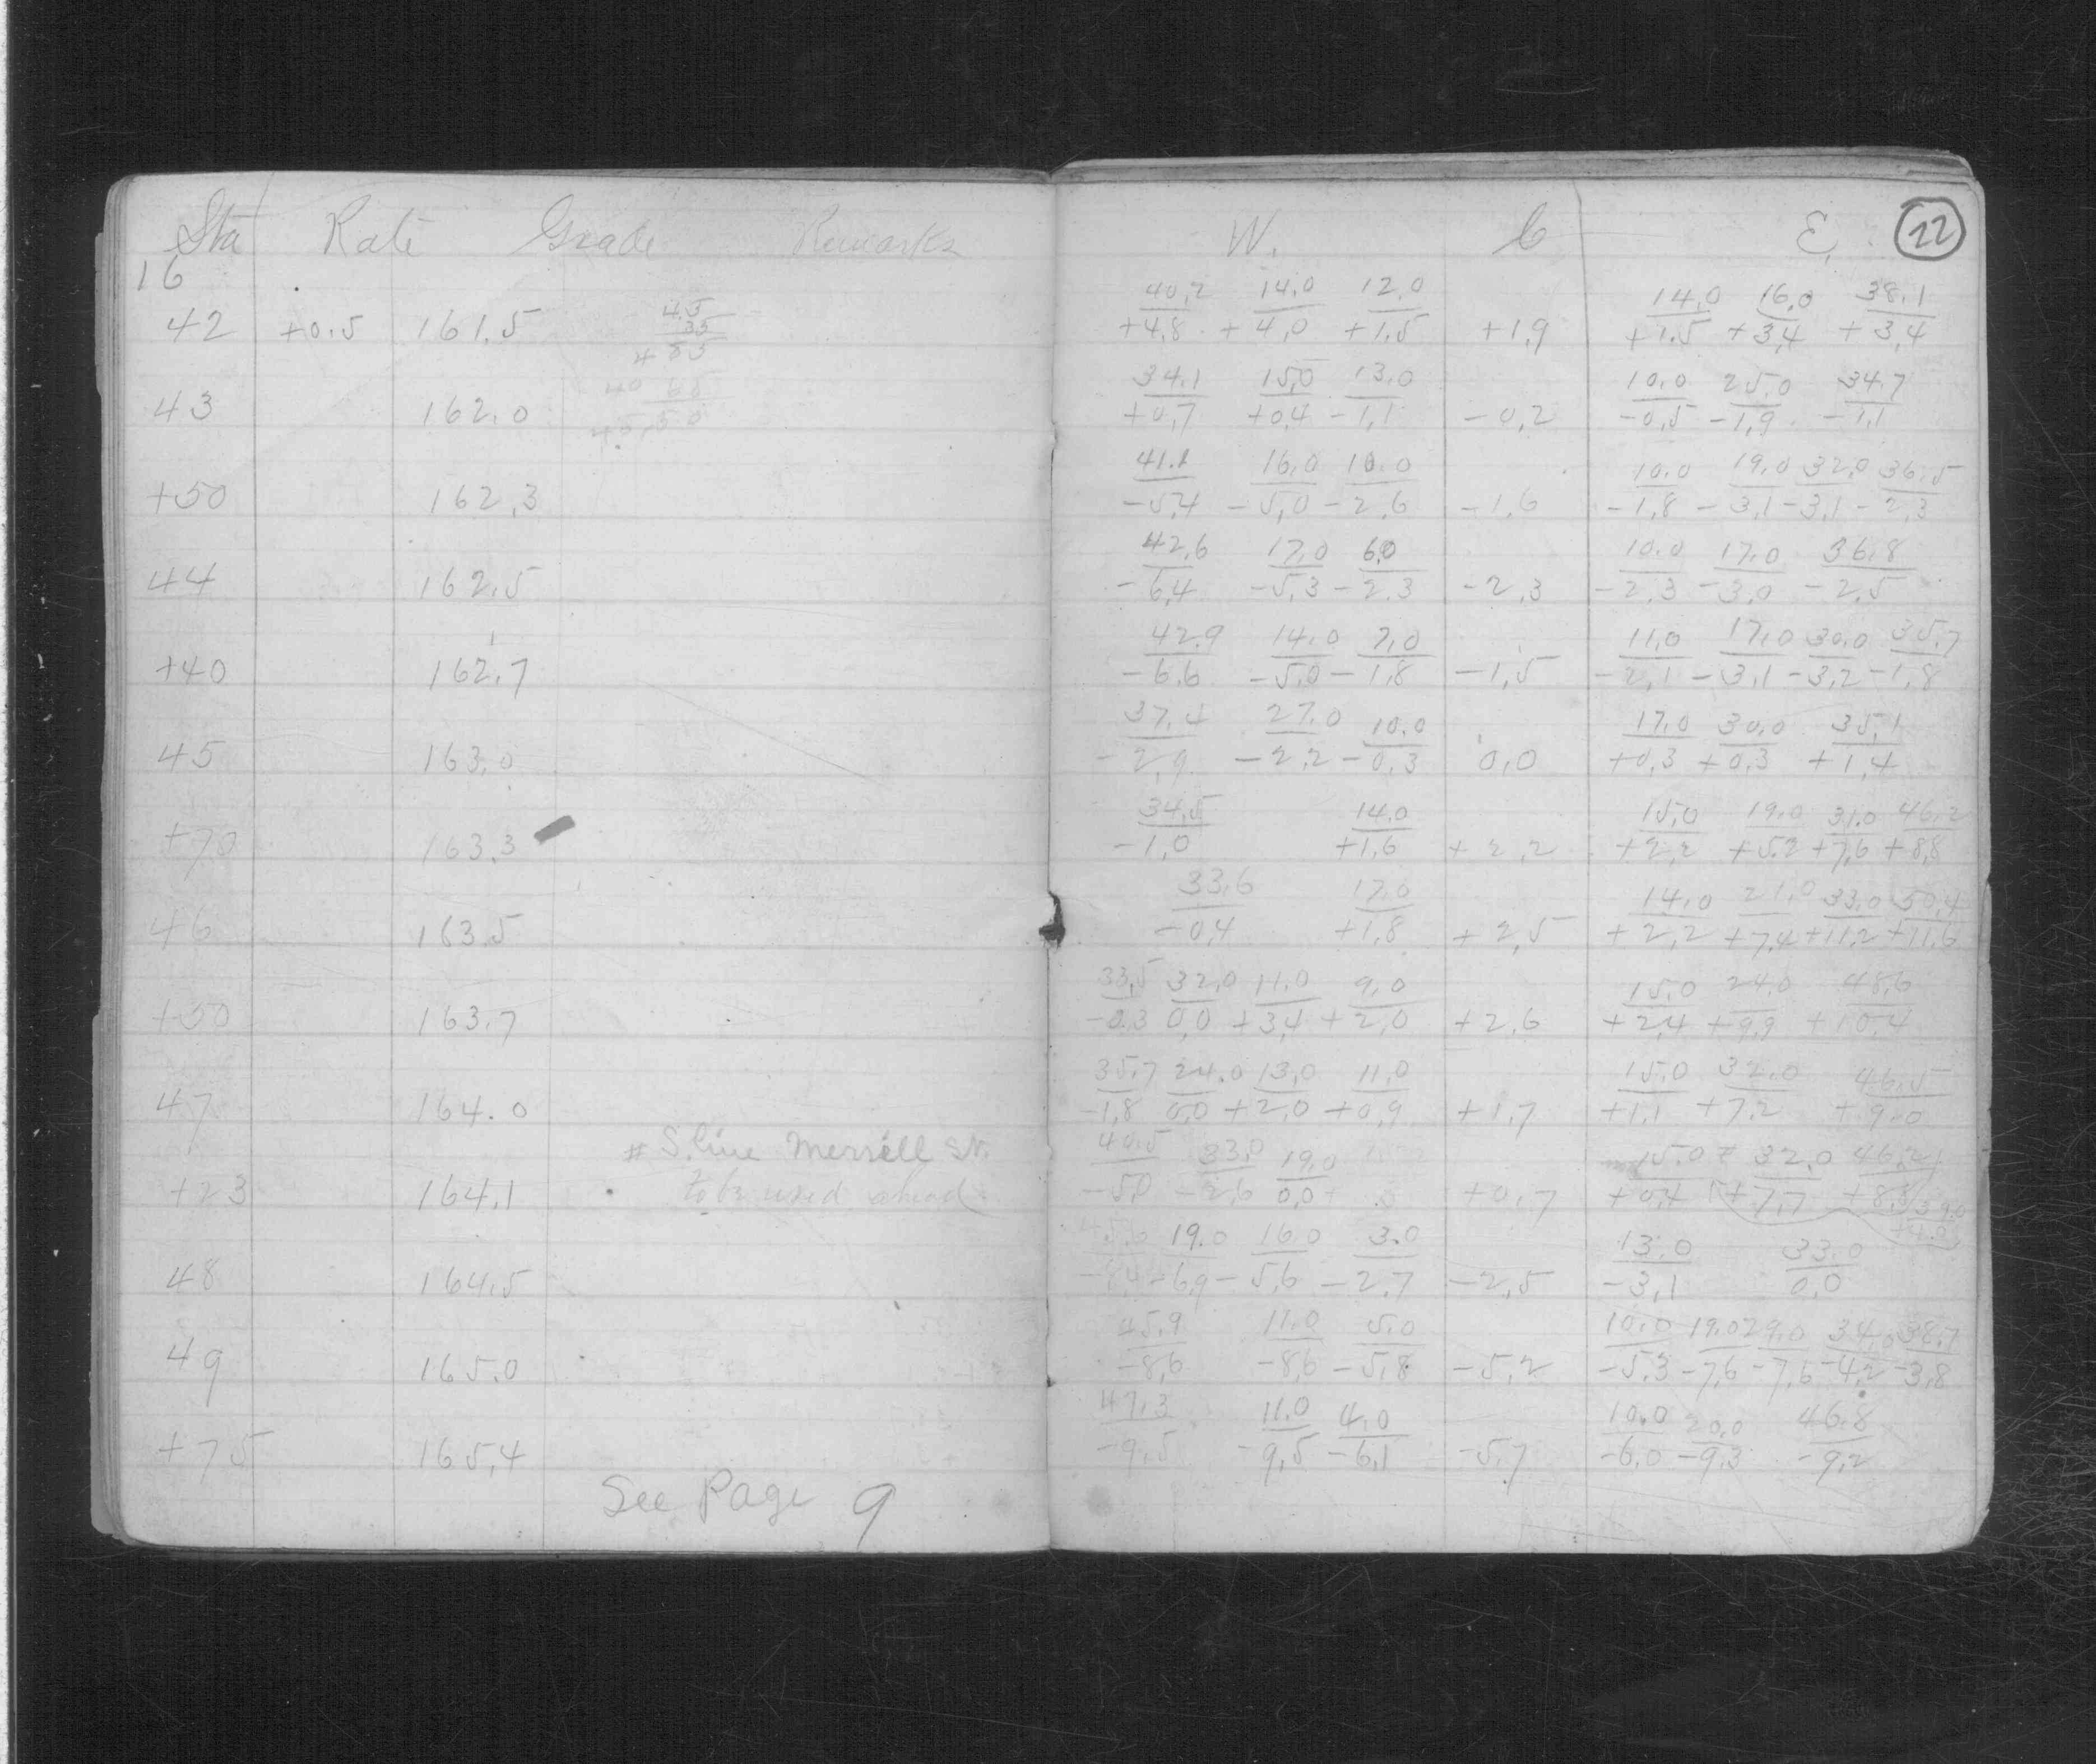 Sta Rate Grade Remarks
16
42 +0.5 161.5
43 162.0
+50 162.3
44 162.5
+40 162.7
45 163.0
+70 163.3
46 163.5
+50 163.7
47 164.0
# S. line Merrill St.
+23 164.1 to be used ahead
48 164.5
49 165.0
+75 165.4
See Page 9
W. C E. 22
40.2 14.0 12.0 14.0 16.0 38.1
+4.8 +4.0 +1.5 +1.9 +1.5 +3.4 +3.4
34.1 15.0 13.0 10.0 25.0 34.7
+0.7 +0.4 -1.1 -0.2 -0.5 -1.9 -1.1
41.1 16.0 10.0 10.0 19.0 32.0 36.5
-5.4 -5.0 -2.6 -1.6 -1.8 -3.1 -3.1 -2.3
42.6 17.0 6.0 10.0 17.0 36.8
-6.4 -5.3 -2.3 -2.3 -2.3 -3.0 -2.5
42.9 14.0 7.0 11.0 17.0 30.0 35.7
-6.6 -5.0 -1.8 -1.5 -2.1 -3.1 -3.2 -1.8
37.4 27.0 10.0 17.0 30.0 35.1
-2.9 -2.2 -0.3 0.0 +0.3 +0.3 +1.4
34.5 14.0 15.0 19.0 31.0 46.2
-1.0 +1.6 +2.2 +2.2 +5.2 +7.6 +8.8
33.6 17.0 14.0 21.0 33.0 50.4
-0.4 +1.8 +2.5 +2.2 +7.4 +11.2 +11.6
33.5 32.0 11.0 9.0 15.0 24.0 48.6
-0.3 0.0 +3.4 +2.0 +2.6 +2.4 +9.9 +10.4
35.7 24.0 13.0 11.0 15.0 32.0 46.5
-1.8 0.0 +2.0 +0.9 +1.7 +1.1 +7.2 +9.0
40.5 33.0 19.0 15.0 32.0 46.2
-5.0 -2.6 0.0 +0.7 +0.4 +7.7 +8.8 39.0
+4.0
19.0 16.0 3.0 13.0 33.0
-8.4 -6.9 -5.6 -2.7 -2.5 -3.1 0.0
45.9 11.0 5.0 10.0 19.0 29.0 34.0 38.7
-8.6 -8.6 -5.8 -5.2 -5.3 -7.6 -7.6 -4.2 -3.8
47.3 11.0 4.0 10.0 20.0 46.8
-9.5 -9.5 -6.1 -5.7 -6.0 -9.3 -9.2